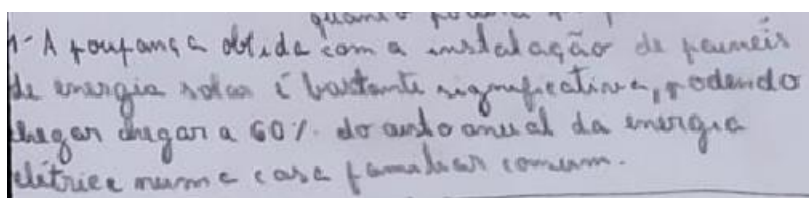 1- A poupança obtida com a instalação de paineis
de energia solar é bastante significativa, podendo
chegar chegar a 60% do custo anual da energia
elétrica numa casa familiar comum.